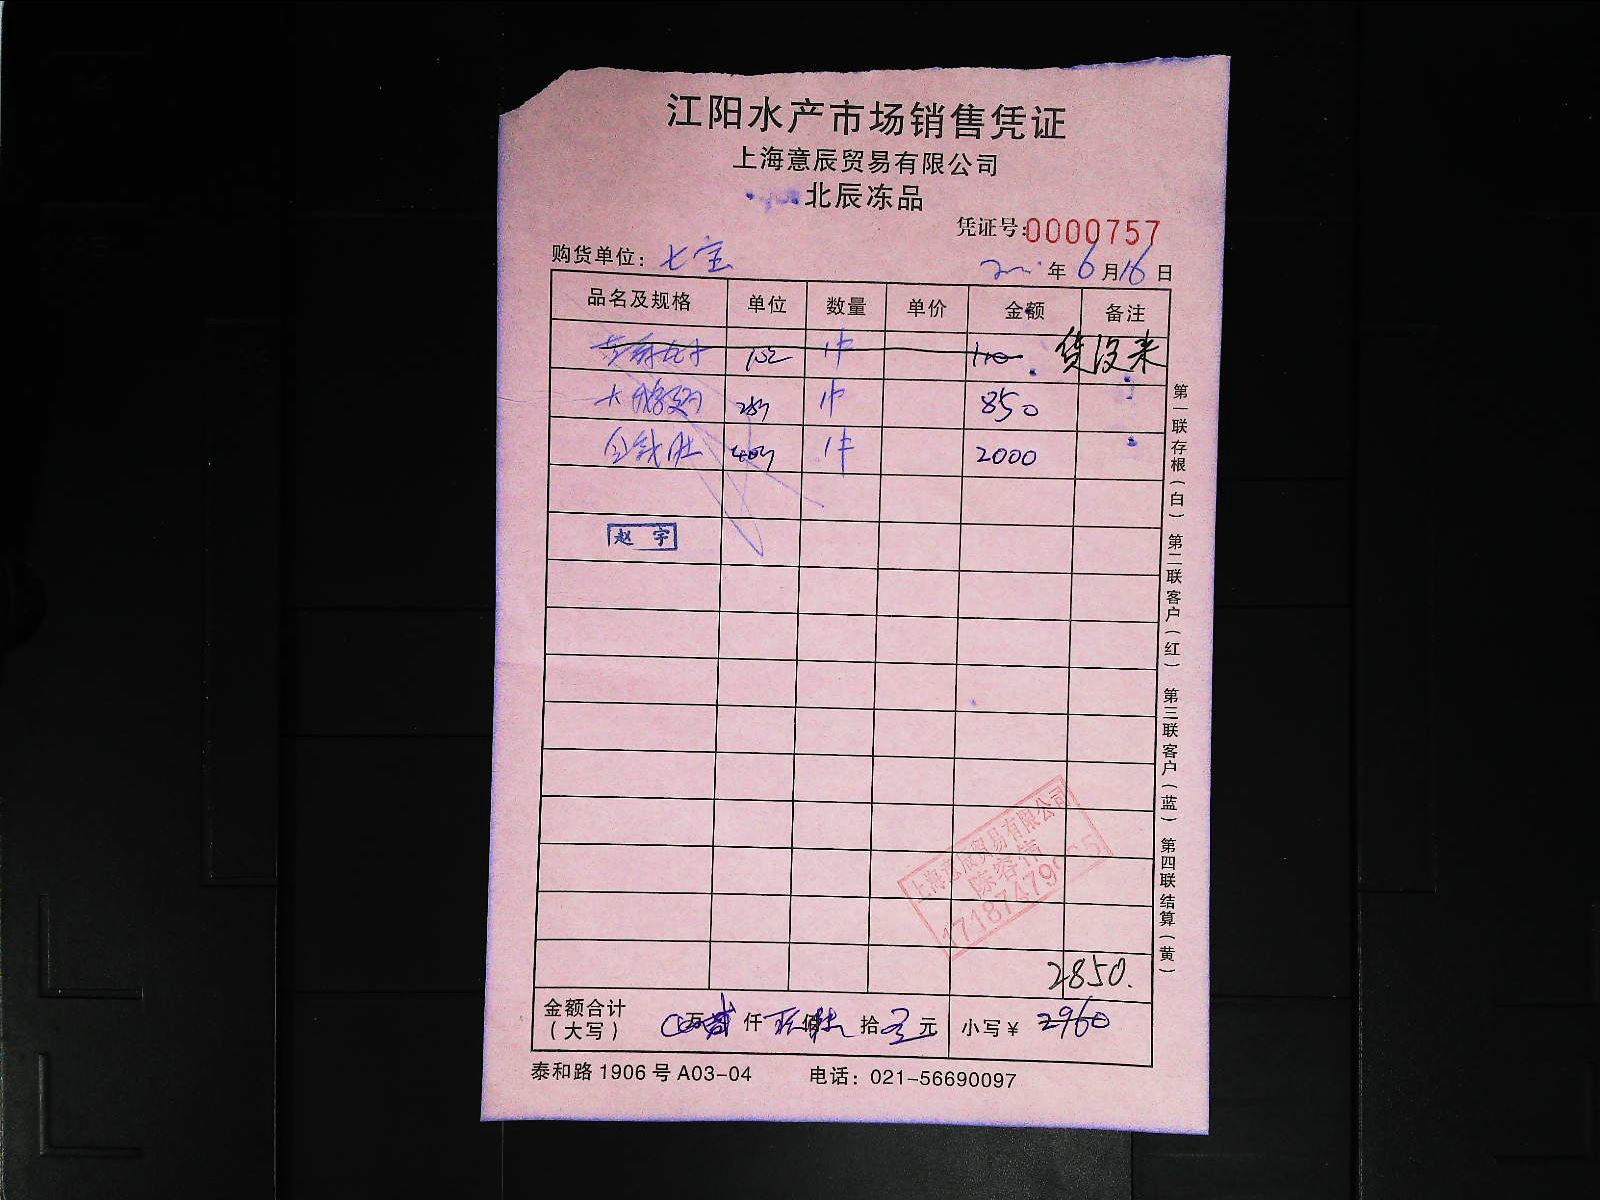 江阳水产市场销售凭证
上海意辰贸易有限公司
北辰冻品
凭证号:0000757
购货单位: 七宝
年 6 月 16 日
品名及规格 单位 数量 单价 金额 备注
1件 110 货没来
1件 850
金钱肚 1件 2000
赵宇
上海意辰贸易有限公司
2850.
金额合计
(大写) 万 仟 佰 拾 元 小写¥ 2960
泰和路 1906 号 A03-04 电话: 021-56690097
第一联存根(白) 第二联客户(红) 第三联客户(蓝) 第四联结算(黄)